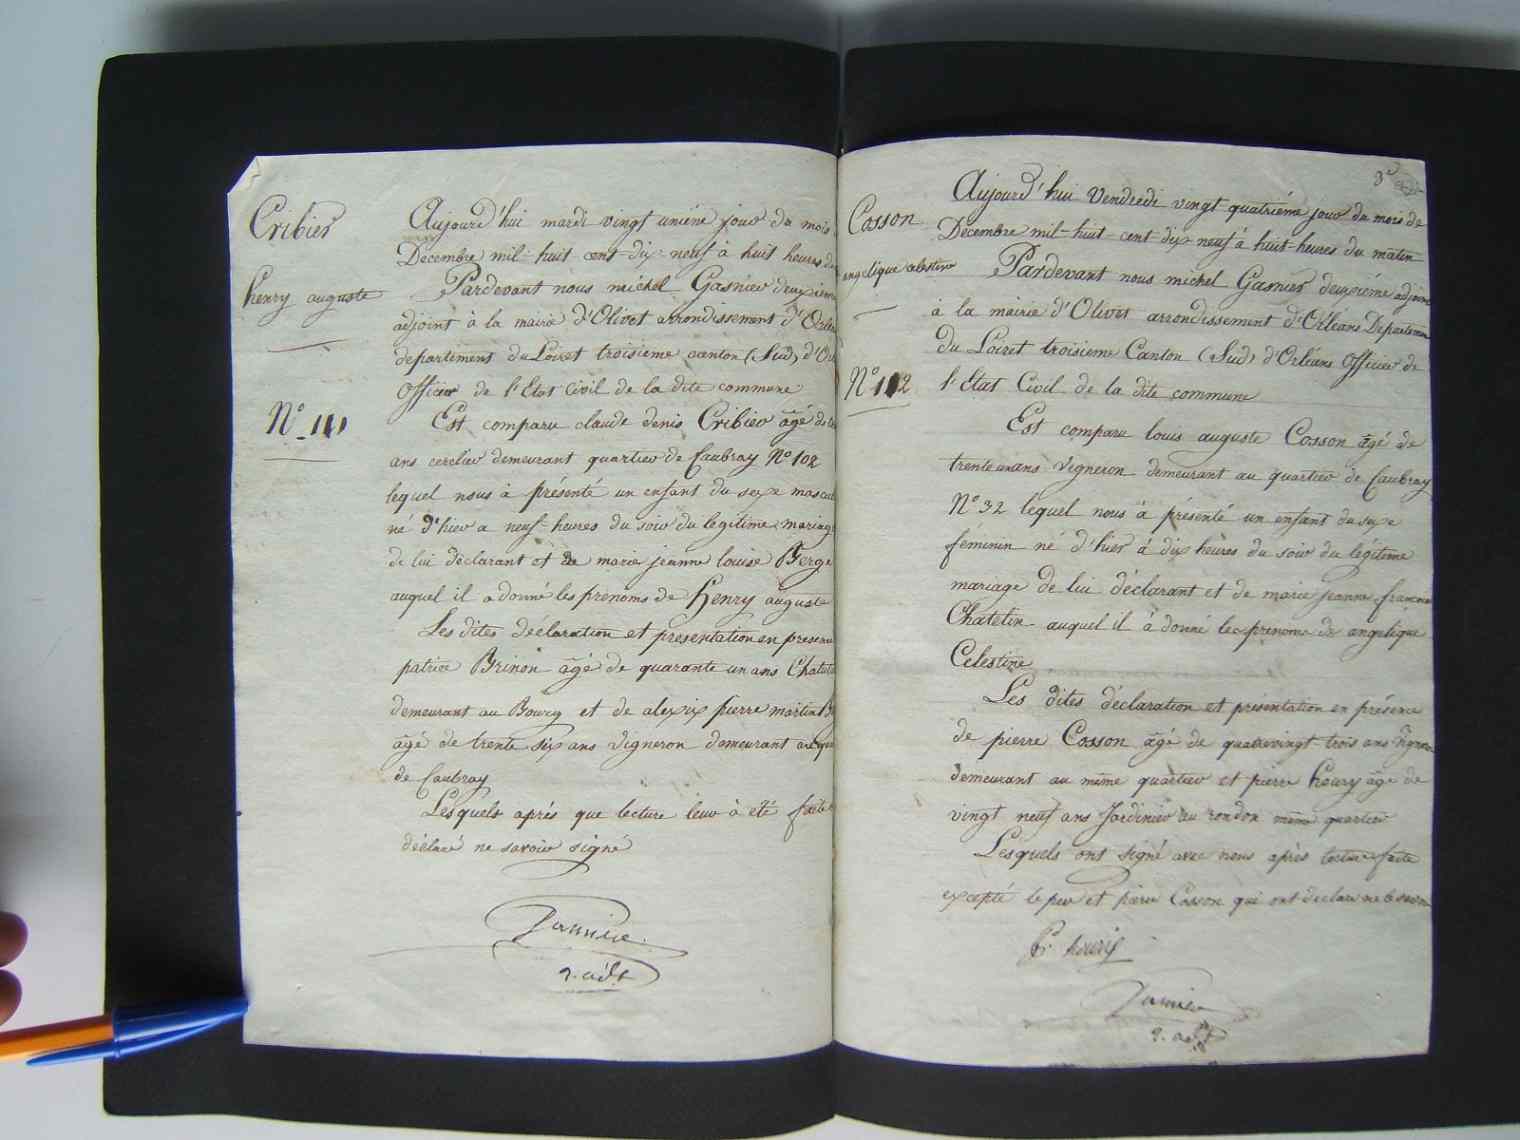 Cribier
henry auguste
N° 111
Aujourd'hui mardi vingt uniéme jour du mois
Decembre mil-huit cent-dix-neuf à huit heures du
Pardevant nous michel Gasnier deuxieme
adjoint à la mairie d'Olivet arrondissement d'Orléa
departement du Loiret troisieme canton (Sud) d'Or
Officier de l'Etat Civil de la dite commune
Est comparu claude denis Cribier âgé de
ans cerclier demeurant quartier de Caubray N° 102
lequel nous à présenté un enfant du sexe mascul
né d'hier a neuf heures du soir du legitime mariage
de lui déclarant et de marie jeanne louise Berge
auquel il a donné les prenoms de Henry auguste
Les dites déclaration et presentation en presence
patrice Brinon âgé de quarante un ans
demeurant au Bourg et de alexix pierre martin
âgé de trente six ans vigneron demeurant au quar
de Caubray
Lesquels après que lecture leur à eté faite
déclaré ne savoir signé
Gasnier
2. adjt
3e
Cosson
angelique celestine
N° 112
Aujourd'hui Vendredi vingt quatriéme jour du mois de
Decembre mil-huit-cent dix neuf à huit-heures du matin
Pardevant nous michel Gasnier deuxiéme adjoint
à la mairie d'Olivet arrondissement d'Orléans Departement
du Loiret troisieme Canton (Sud) d'Orléans Officier de
l'Etat Civil de la dite commune
Est comparu louis auguste Cosson âgé de
trente un ans vigneron demeurant au quartier de Caubray
N° 32 lequel nous à présenté un enfant du sexe
féminin né d'hier à dix heures du soir du légitime
mariage de lui déclarant et de marie jeanne francoise
Chatelin auquel il à donné les prenoms de angelique
Celestine
Les dites déclaration et présentation en présence
de pierre Cosson âgé de quatrevingt trois ans vigneron
demeurant au même quartier et pierre houry âgé de
vingt neuf ans Jardinier au rondon même quartier
Lesquels ont signé avec nous après lecture faite
excepté le pere et pierre Cosson qui ont declaré ne le savoir
P. houry
Gasnier
2. adjt